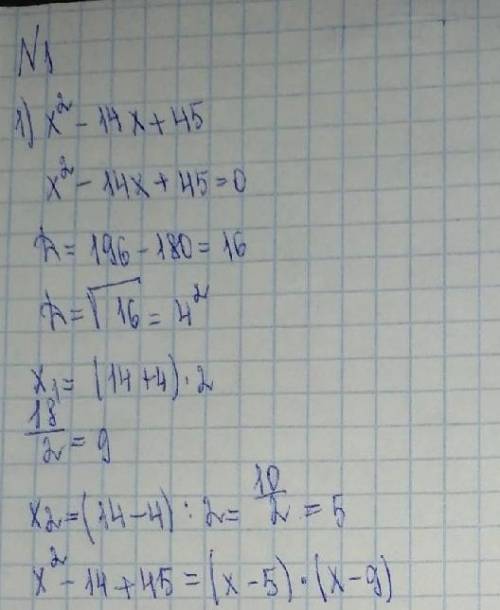 N1
1) x² - 14x + 45
x² - 14x + 45 = 0
D = 196 - 180 = 16
D = √16 = 4²
x₁ = (14 + 4) · 2
18/2 = 9
x₂ = (14 - 4) : 2 = 10/2 = 5
x² - 14 + 45 = (x - 5) · (x - 9)